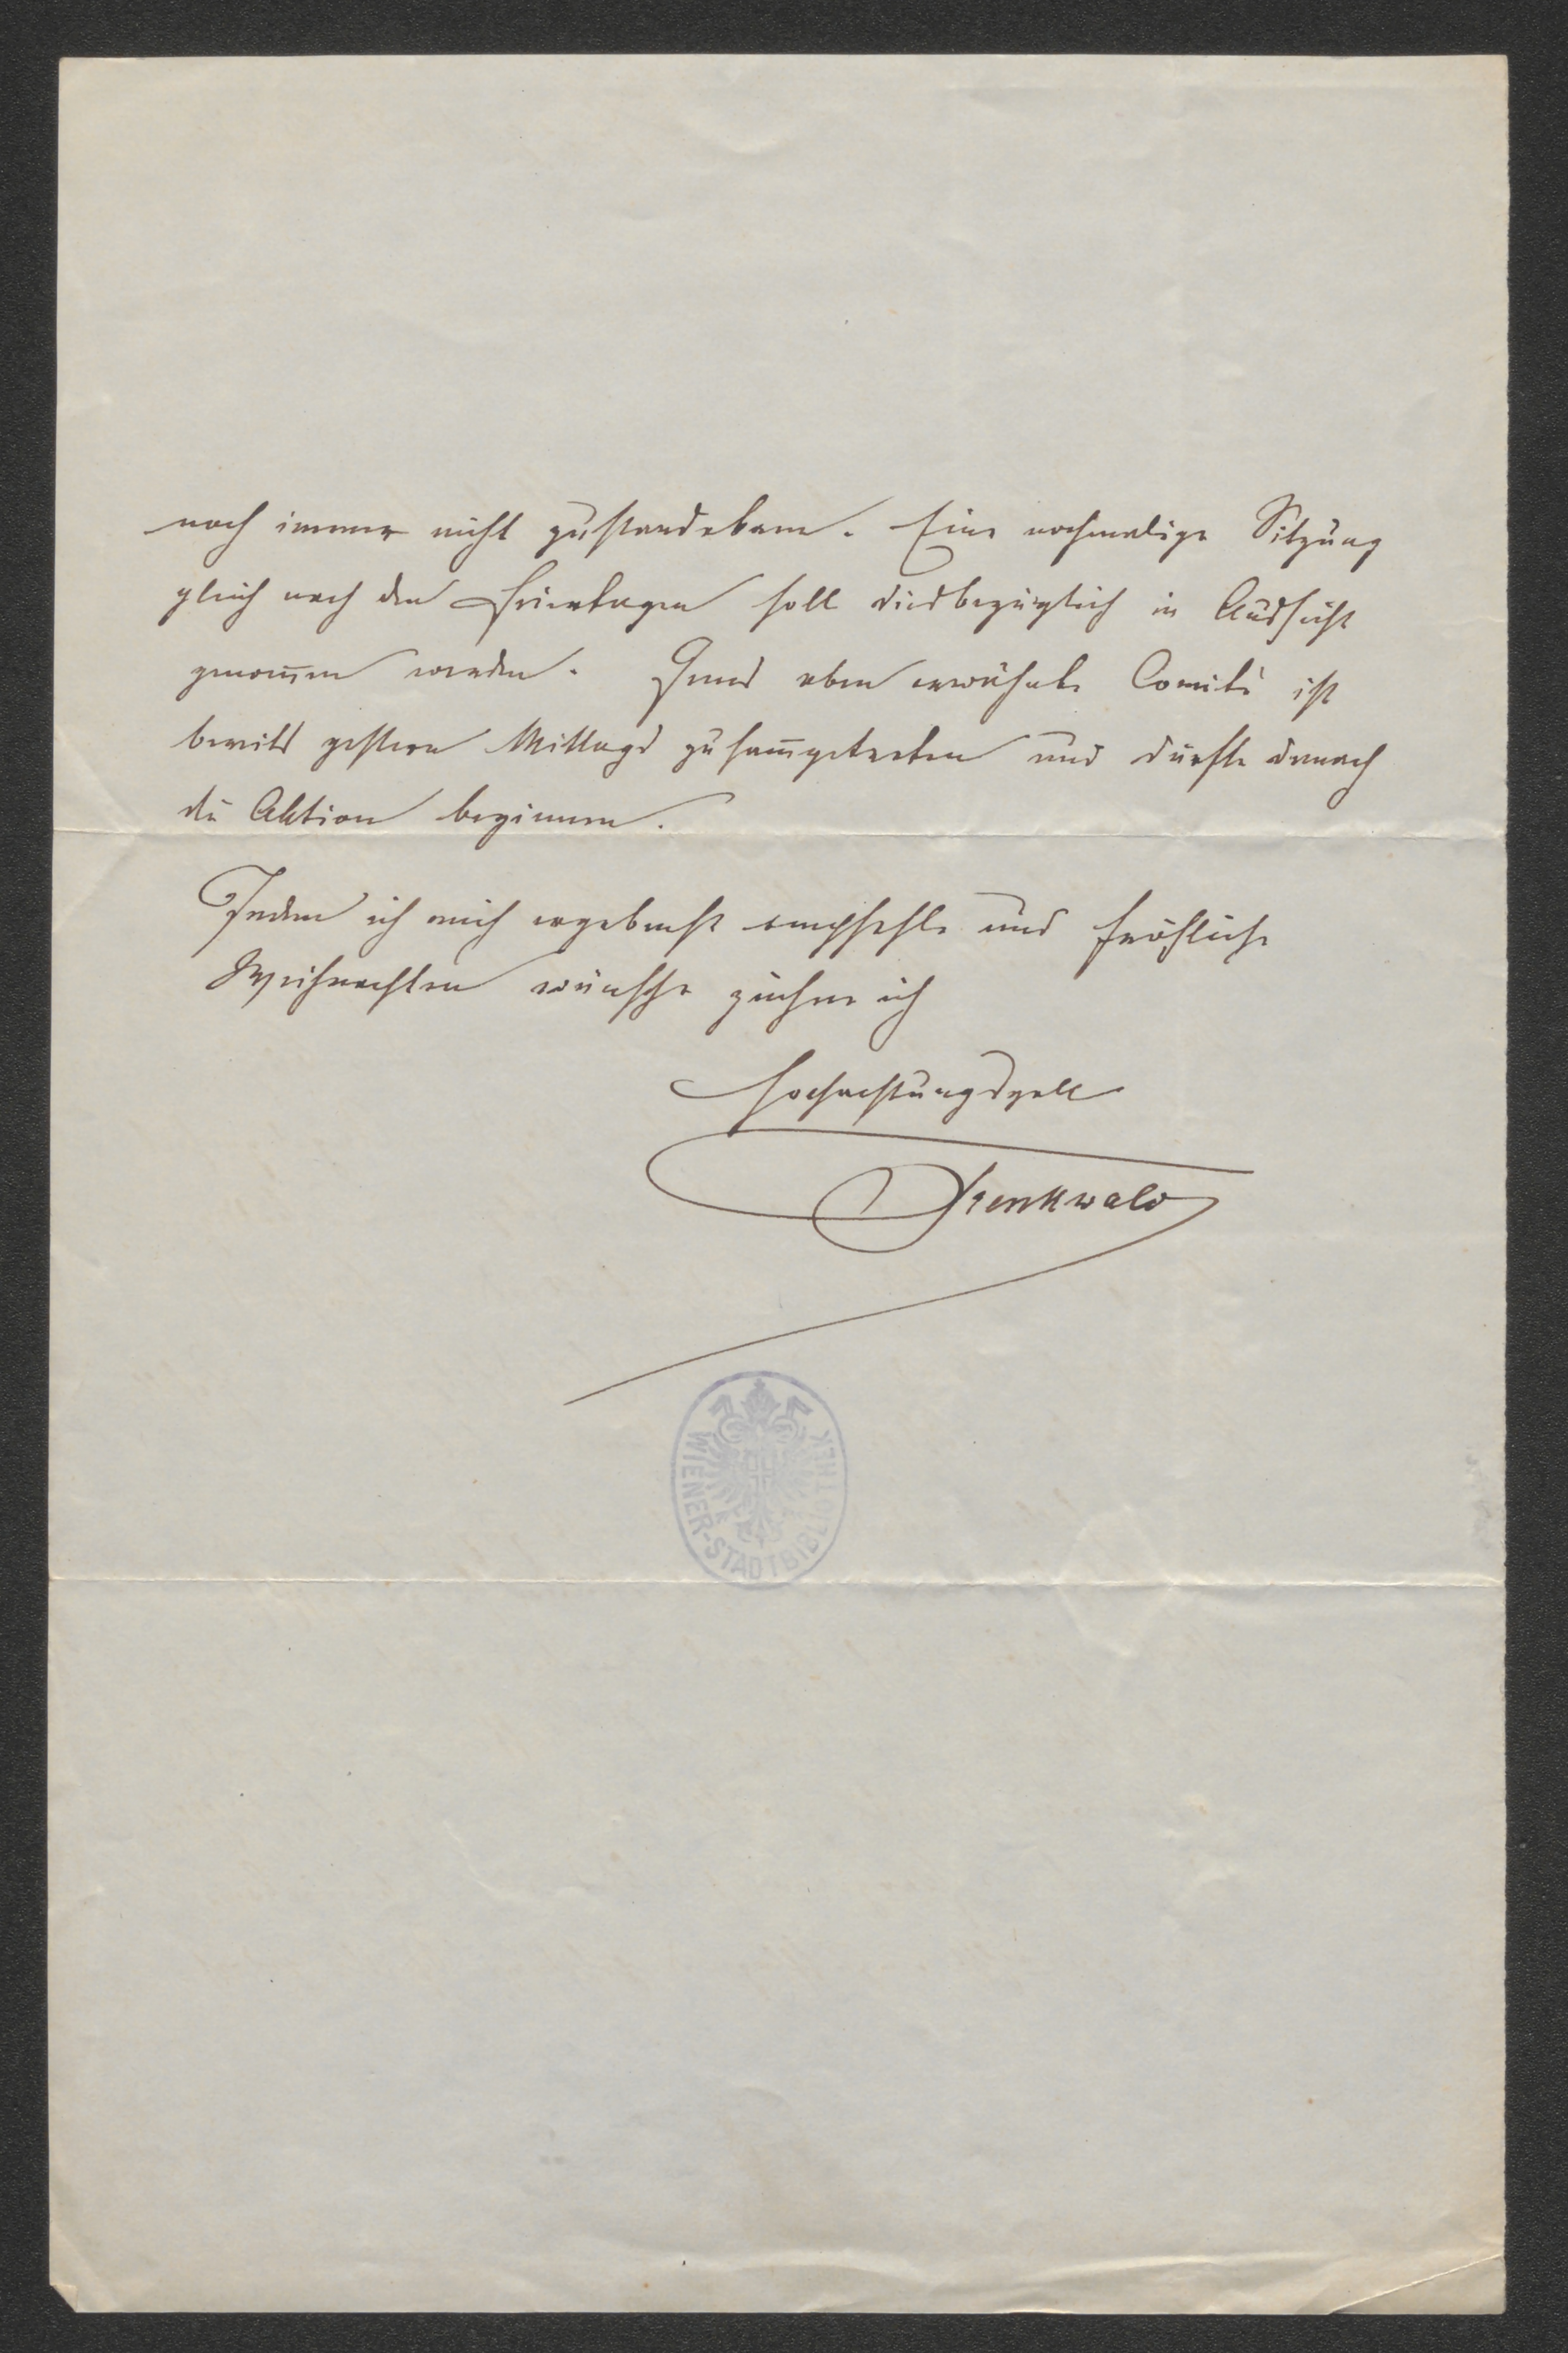 noch immer nicht zustandekam. Eine nochmalige Sitzung
gleich nach den Feiertagen soll diesbezüglich in Aussicht
genom̄en werden. Jenes eben erwähnte Comité ist
bereits gestern Mittags zusam̄getreten und dürfte danach
die Aktion beginnen.
Indem ich mich ergebenst empfehle und fröhliche
Weihnachten wünsche zeichne ich
Hochachtungsvoll
Trenkwald
WIENER-STADTBIBLIOTHEK